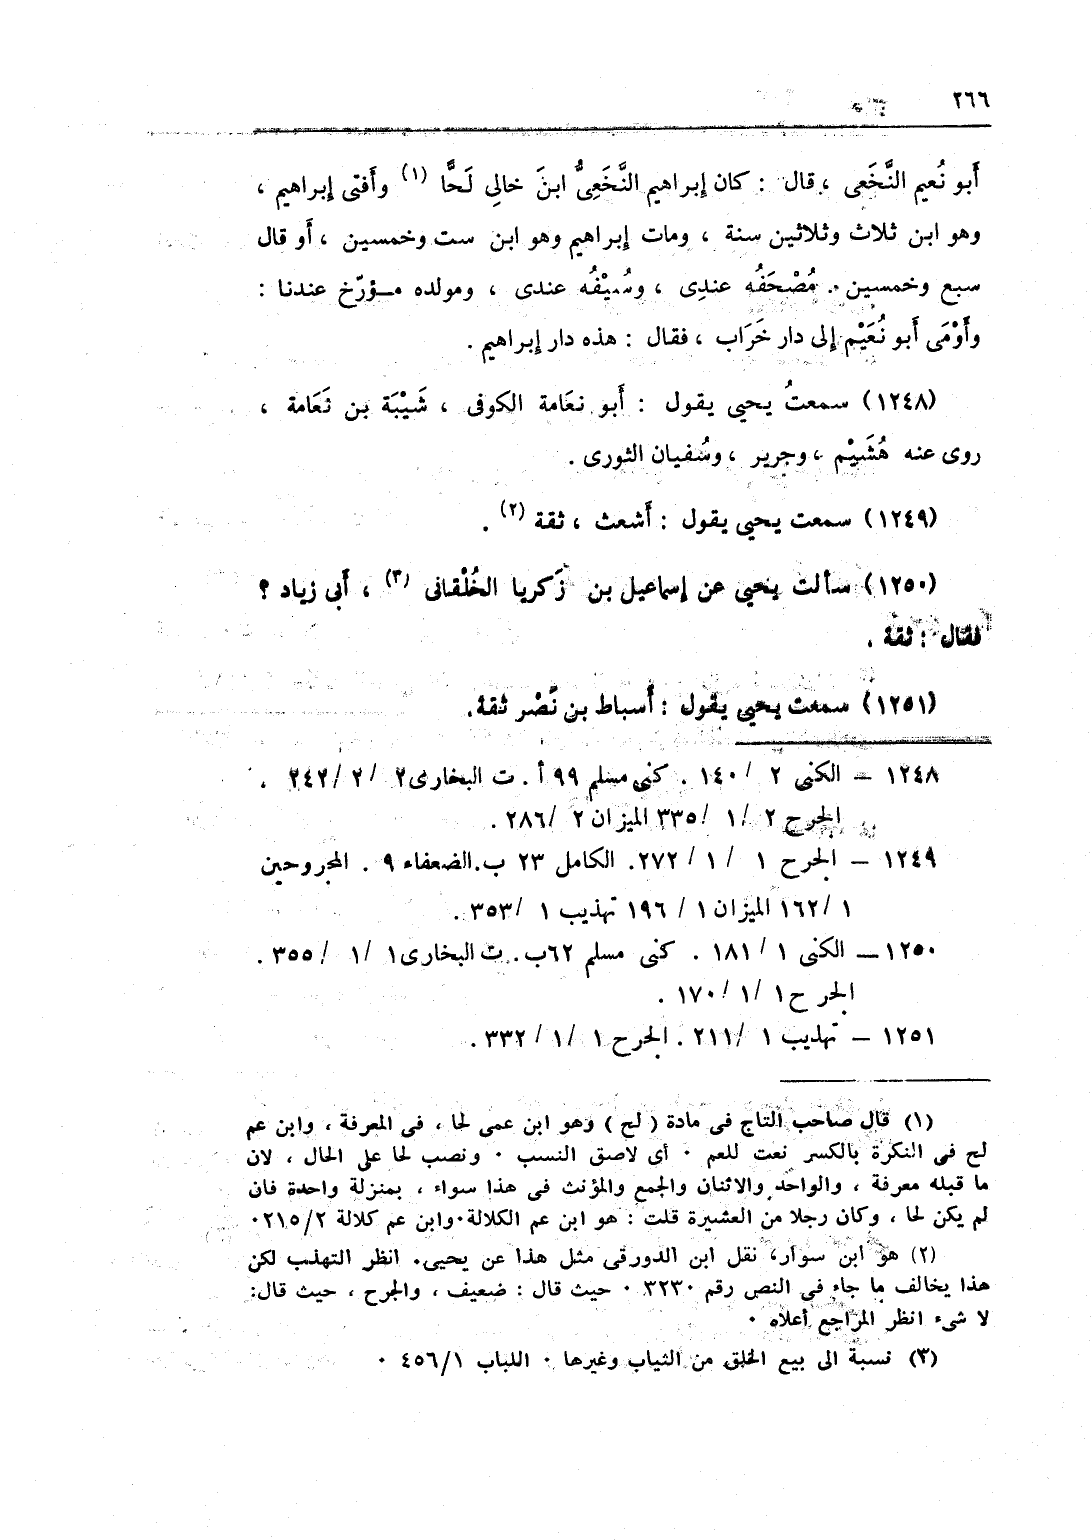 ٢٦٦
أبو نُعيم النَّخَعى ، قال : كان إبراهيم النَّخَعِىُّ ابنَ خالِي لَحًّا (١) وأَفتى إبراهيم ،
وهو ابن ثلاث وثلاثين سنة ، ومات إبراهيم وهو ابن ست وخمسين ، أَو قال
سبع وخمسين . مُصْحَفُه عندِى ، وسُيْفُه عندى ، ومولده مــؤرّخ عندنا :
وأَوْمَى أَبو نُعَيْم إلى دار خَرَاب ، فقال : هذه دار إبراهيم .
(١٢٤٨) سمعتُ يحيى يقول : أَبو نعَامة الكوفى ، شَيْبَة بن نَعَامة ،
روى عنه هُشَيْم ، وجرير ، وسُفيان الثورى .
(١٢٤٩) سمعت يحيى يقول : أَشعث ، ثقة (٢) .
(١٢٥٠) سألت يحيى عن إسماعيل بن زَكريا الخُلْقانى (٣) ، أَبى زياد ؟
فقال : ثقة .
(١٢٥١) سمعت يحيى يقول : أَسباط بن نَّصْر ثقة.
١٢٤٨ – الكنى ٢ / ١٤٠ . كنى مسلم ٩٩ أ . ت البخارى٢ /٢ /٢٤٢ ،
الجرح ٢ /١ /٣٣٥ الميزان ٢ /٢٨٦ .
١٢٤٩ – الجرح ١ /١ /٢٧٢. الكامل ٢٣ ب.الضعفاء ٩ . المجروحين
١ /١٦٢ الميزان ١ / ١٩٦ تهذيب ١ /٣٥٣ .
١٢٥٠ – الكنى ١ /١٨١ . كنى مسلم ٦٢ب. ت البخارى١ /١ /٣٥٥ .
الجر ح١ /١ /١٧٠ .
١٢٥١ – تهذيب ١ /٢١١ . الجرح ١ /١ /٣٣٢ .
(١) قال صاحب التاج فى مادة ( لح ) وهو ابن عمى لحا ، فى المعرفة ، وابن عم
لح فى النكرة بالكسر نعت للعم ٠ أى لاصق النسب ٠ ونصب لحا على الحال ، لان
ما قبله معرفة ، والواحد والاثنان والجمع والمؤنث فى هذا سواء ، بمنزلة واحدة فان
لم يكن لحا ، وكان رجلا من العشيرة قلت : هو ابن عم الكلالة٠وابن عم كلالة ٢/٢١٥٠
(٢) هو ابن سوار، نقل ابن الدورقى مثل هذا عن يحيى. انظر التهذب لكن
هذا يخالف ما جاء فى النص رقم ٣٢٣٠ ٠ حيث قال : ضعيف ، والجرح ، حيث قال:
لا شىء انظر المراجع أعلاه ٠
(٣) نسبة الى بيع الخلق من الثياب وغيرها ٠ اللباب ٤٥٦/١ ٠